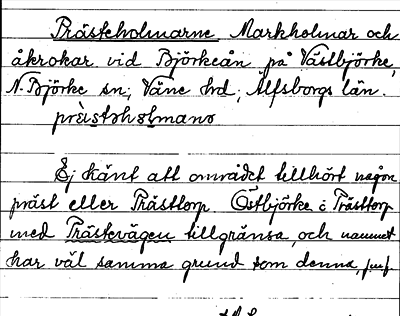 Prästeholmarne Markholmar och
åkrokar vid Björkeån på Västbjörke,
N. Björke sn, Väne hd, Älfsborgs län.
prèstəhɔlmanə
Ej känt att området tillhört någon
präst eller Prästtorp. Östbjörke o Prästtorp
med Prästevägen tillgränsa, och namnet
har väl samma grund som denna, jmf.